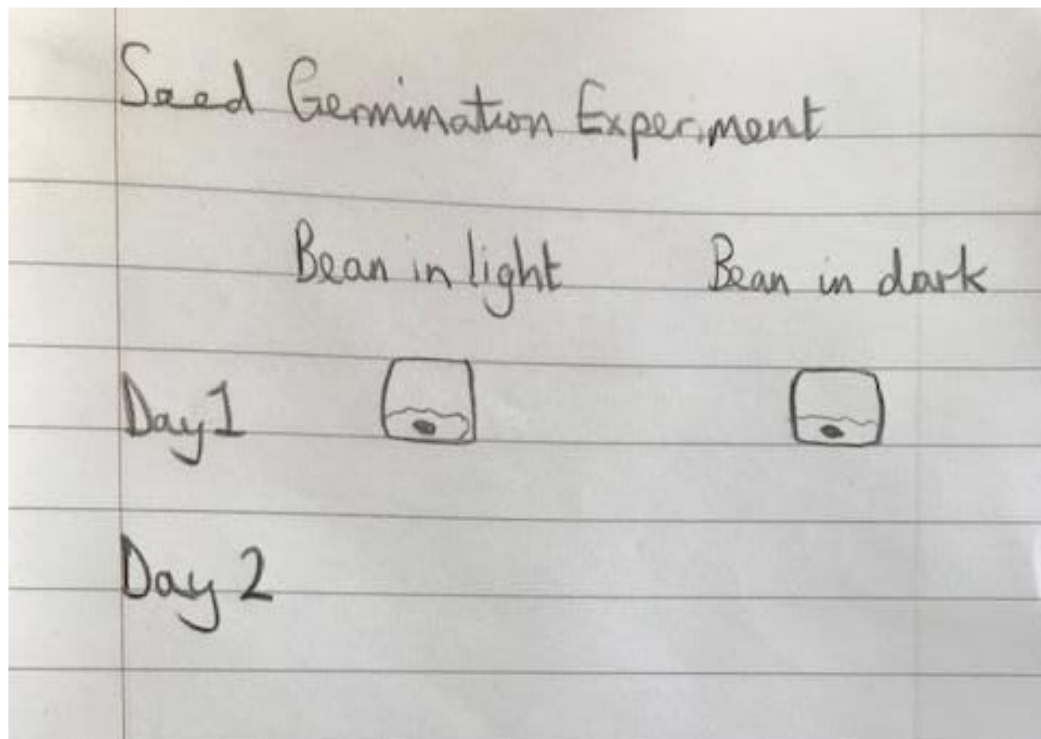 Seed Germination Experiment
Bean in light Bean in dark
Day 1
Day 2